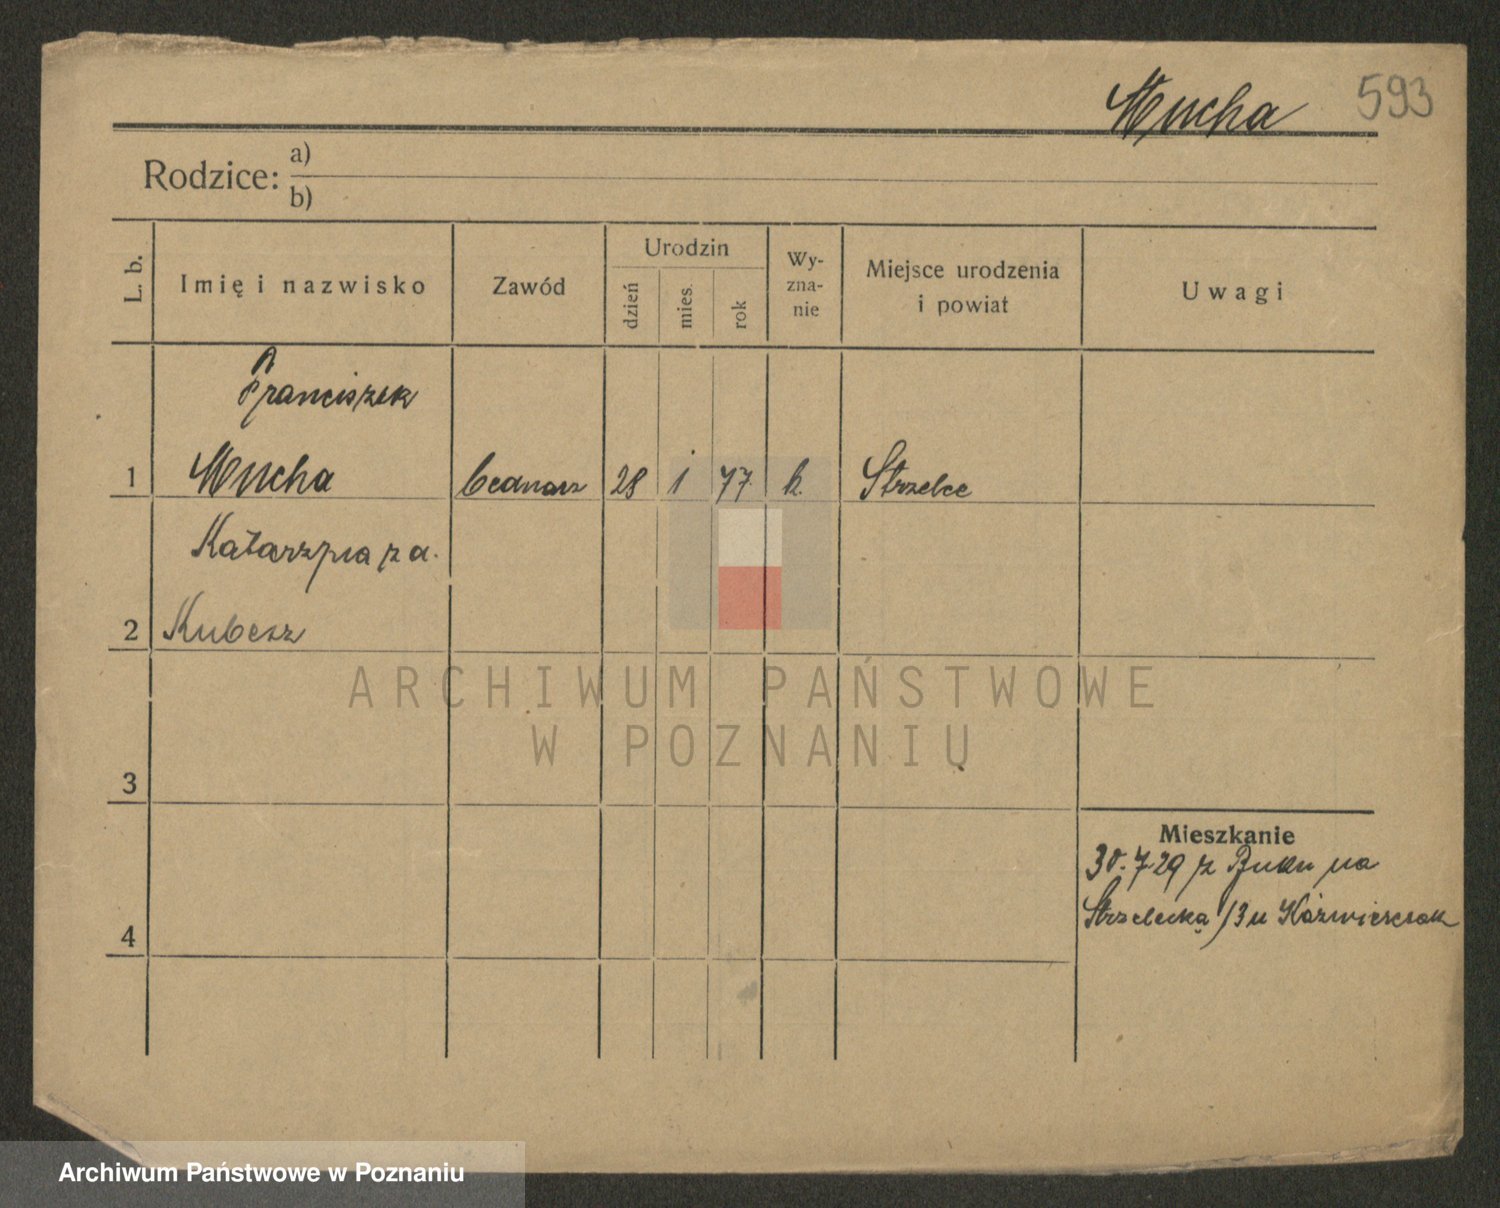 Mucha 593
Rodzice: a)
b)
L. b. Imię i nazwisko Zawód Urodzin dzień mies. rok Wy-zna-nie Miejsce urodzenia i powiat Uwagi
Franciszek
1 Mucha bednarz 28 i 77 k. Strzelce
Katarzyna z d.
2 Kubesz
ARCHIWUM PAŃSTWOWE
W POZNANIU
3
Mieszkanie
30.7 29 z Buku na
Strzelecka 13 u Kaźmierczak
4
Archiwum Państwowe w Poznaniu